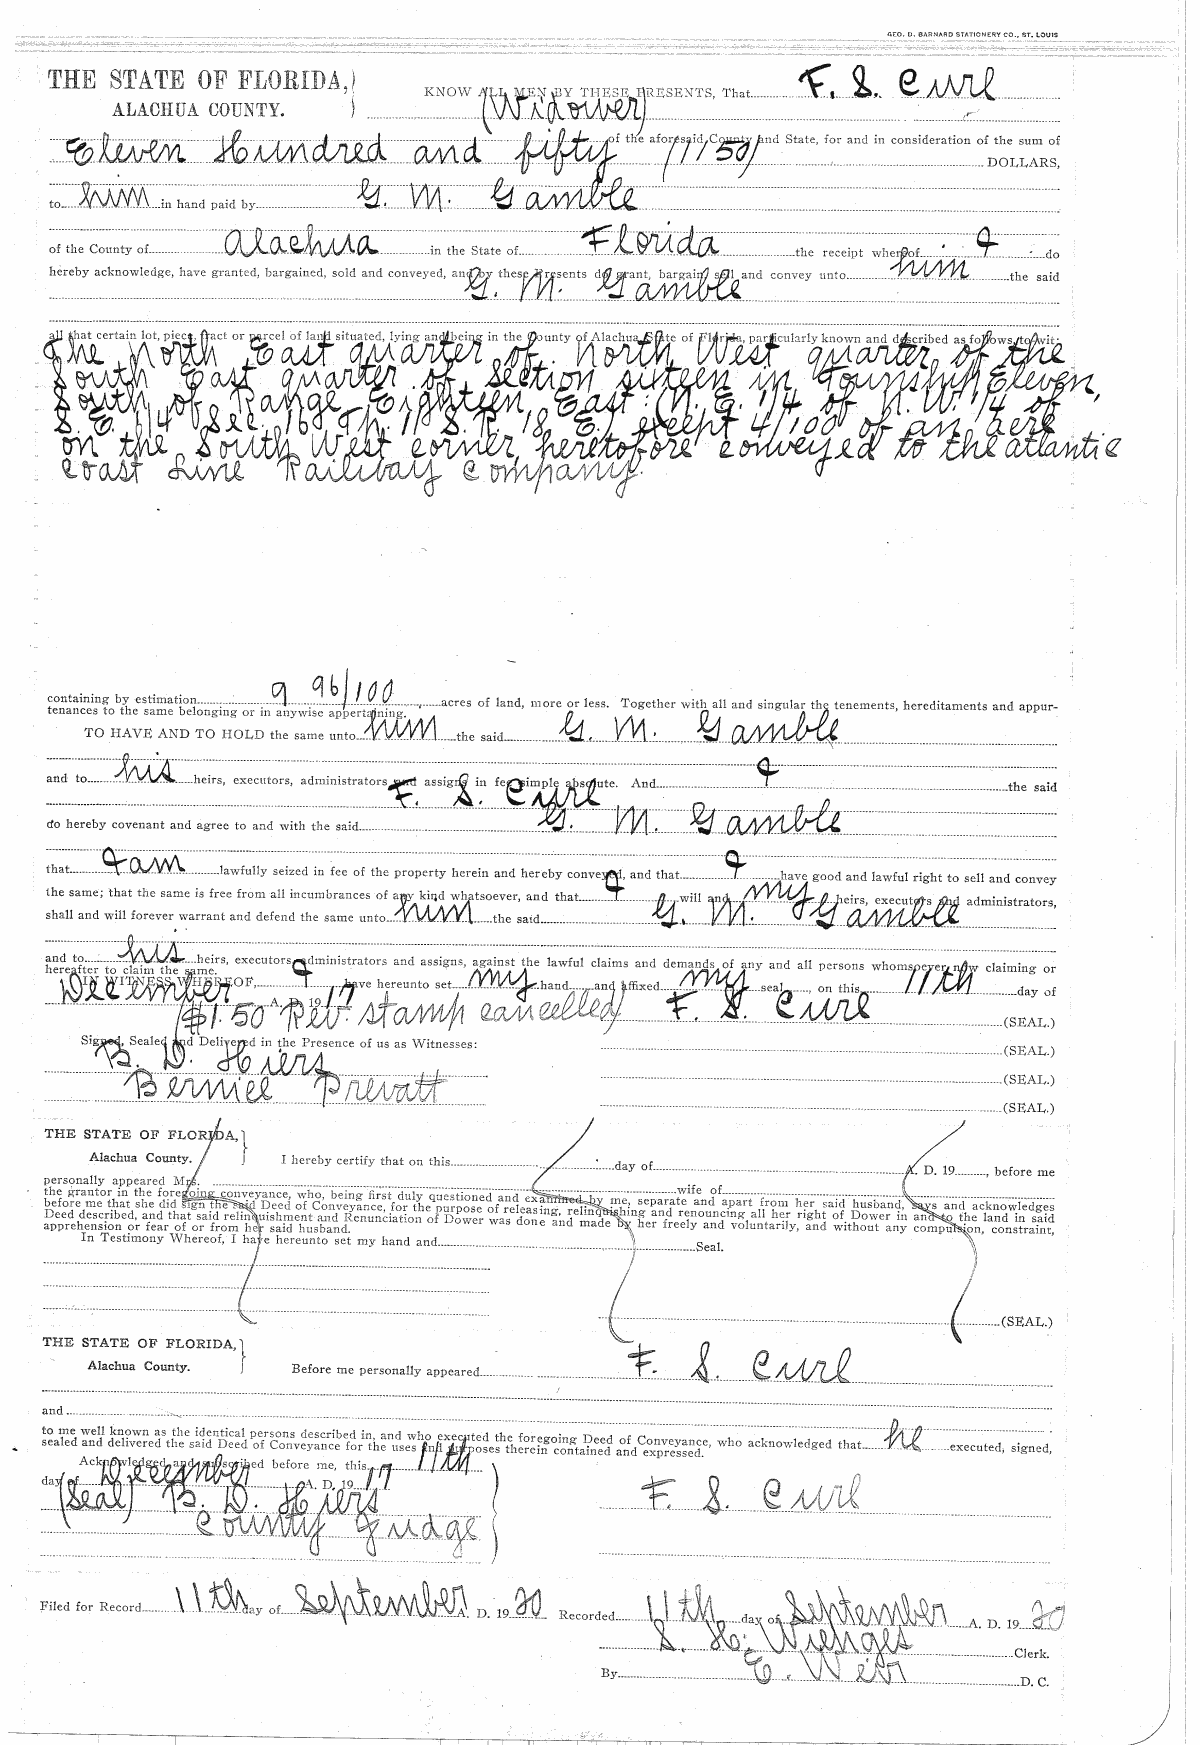 GEO. D. BARNARD STATIONERY CO., ST. LOUIS
THE STATE OF FLORIDA,
ALACHUA COUNTY.
KNOW ALL MEN BY THESE PRESENTS, That F. S. Curl
(Widower)
of the aforesaid County and State, for and in consideration of the sum of
Eleven Hundred and fifty (1150) DOLLARS,
to him in hand paid by G. M. Gamble
of the County of Alachua in the State of Florida the receipt whereof I do
hereby acknowledge, have granted, bargained, sold and conveyed, and by these Presents do grant, bargain, sell and convey unto him the said
G. M. Gamble
all that certain lot, piece, tract or parcel of land situated, lying and being in the County of Alachua, State of Florida, particularly known and described as follows, to-wit:
The North East quarter of North West quarter of the
South East quarter of Section sixteen in Township Eleven,
South of Range Eighteen East (N. E. 1/4 of N. W. 1/4 of
S. E. 1/4 Sec. 16 Tp. 11 S. R. 18 E.) except 4/100 of an acre
on the South West corner heretofore conveyed to the atlantic
Coast Line Railway Company.
containing by estimation 9 96/100 acres of land, more or less. Together with all and singular the tenements, hereditaments and appur-
tenances to the same belonging or in anywise appertaining.
TO HAVE AND TO HOLD the same unto him the said G. M. Gamble
and to his heirs, executors, administrators and assigns in fee simple absolute. And I the said
F. S. Curl
do hereby covenant and agree to and with the said G. M. Gamble
that I am lawfully seized in fee of the property herein and hereby conveyed, and that I have good and lawful right to sell and convey
the same; that the same is free from all incumbrances of any kind whatsoever, and that I will and my heirs, executors and administrators,
shall and will forever warrant and defend the same unto him the said G. M. Gamble
and to his heirs, executors, administrators and assigns, against the lawful claims and demands of any and all persons whomsoever, now claiming or
hereafter to claim the same.
IN WITNESS WHEREOF, I have hereunto set my hand and affixed my seal, on this 11th day of
December A. D. 19 17
($1.50 Rev. stamp cancelled) F. S. Curl (SEAL.)
Signed, Sealed and Delivered in the Presence of us as Witnesses: (SEAL.)
B. D. Hiers (SEAL.)
Berniel Prevatt (SEAL.)
THE STATE OF FLORIDA,
Alachua County.
I hereby certify that on this day of A. D. 19 , before me
personally appeared Mrs. wife of
the grantor in the foregoing conveyance, who, being first duly questioned and examined by me, separate and apart from her said husband, says and acknowledges
before me that she did sign the said Deed of Conveyance, for the purpose of releasing, relinquishing and renouncing all her right of Dower in and to the land in said
Deed described, and that said relinquishment and Renunciation of Dower was done and made by her freely and voluntarily, and without any compulsion, constraint,
apprehension or fear of or from her said husband.
In Testimony Whereof, I have hereunto set my hand and Seal.
(SEAL.)
THE STATE OF FLORIDA,
Alachua County.
Before me personally appeared F. S. Curl
and
to me well known as the identical persons described in, and who executed the foregoing Deed of Conveyance, who acknowledged that he executed, signed,
sealed and delivered the said Deed of Conveyance for the uses and purposes therein contained and expressed.
Acknowledged and subscribed before me, this 11th
day of December A. D. 19 17
(Seal) B. D. Hiers F. S. Curl
County Judge
Filed for Record 11th day of September A. D. 19 20 Recorded 11th day of September A. D. 19 20
S. H. Wienges Clerk.
By E. Weir D. C.